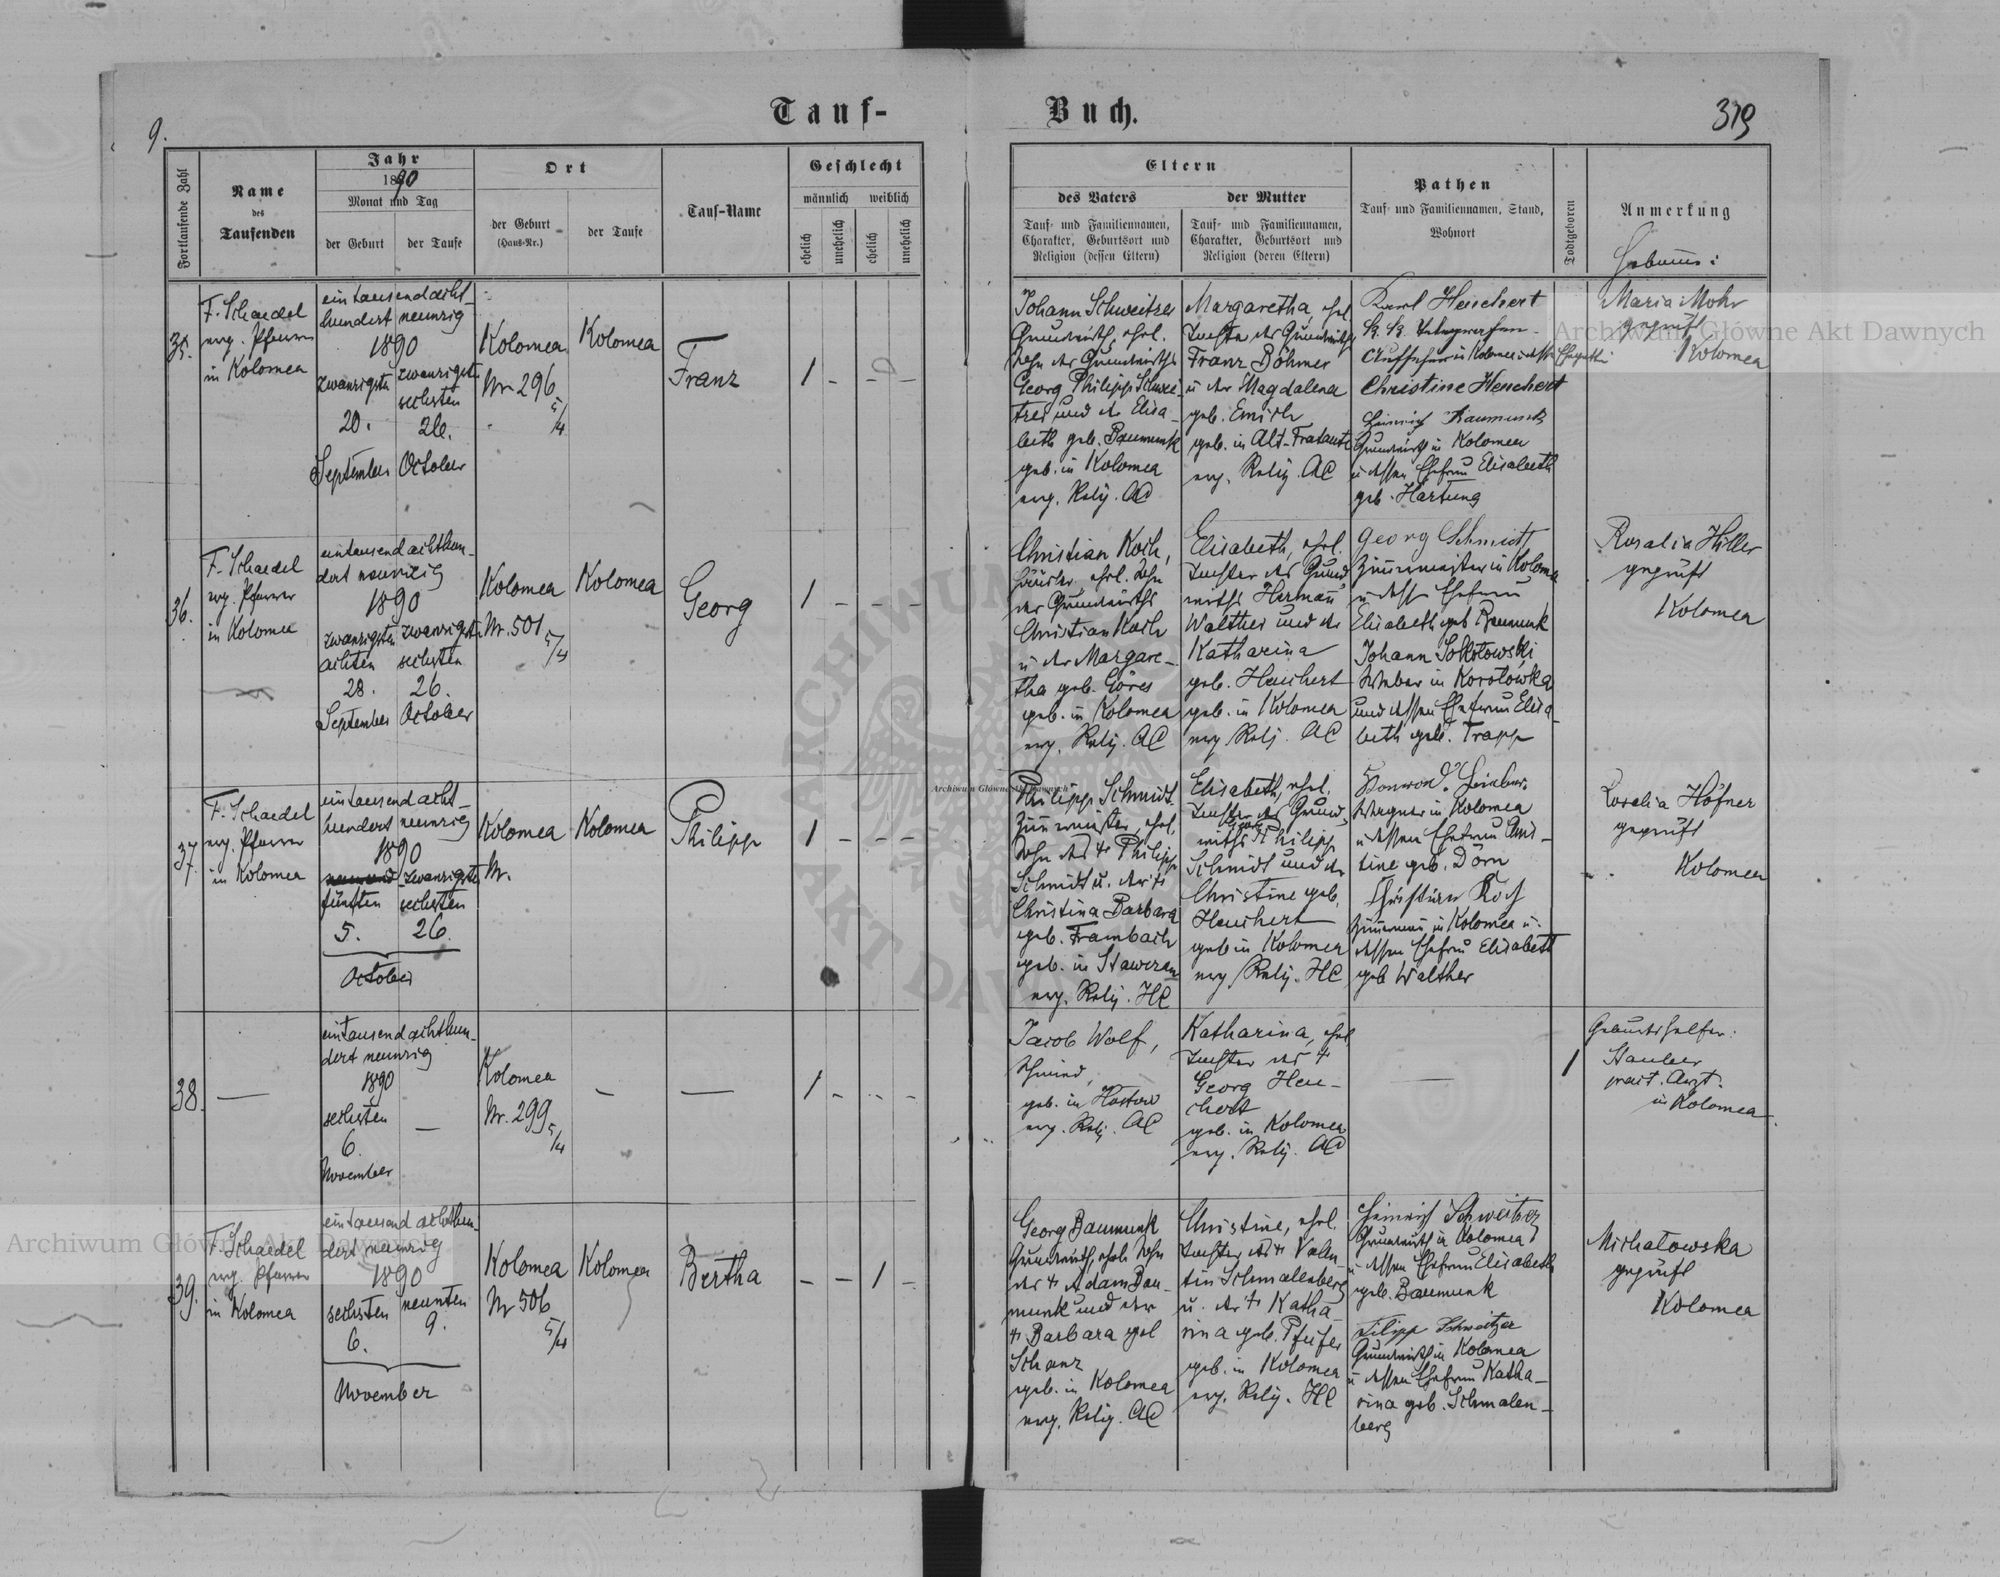 9.
Tauf-
Buch.
319
Fortlaufende Zahl
Name
des
Taufenden
Jahr
1890
Monat und Tag
der Geburt
der Taufe
Ort
der Geburt
(Haus-Nr.)
der Taufe
Tauf-Name
Geschlecht
männlich
weiblich
ehelich
unehelich
ehelich
unehelich
Eltern
des Vaters
Tauf- und Familiennamen,
Charakter, Geburtsort und
Religion (dessen Eltern)
der Mutter
Tauf- und Familiennamen,
Charakter, Geburtsort und
Religion (deren Eltern)
Pathen
Tauf- und Familiennamen, Stand,
Wohnort
Todtgeboren
Anmerkung
35.
F. Schaedel
evg. Pfarrer
in Kolomea
eintausendacht-
hundert neunzig
1890
zwanzigsten
20.
September
zwanzigst
sechsten
26.
October
Kolomea
Nr 296
5/4
Kolomea
Franz
1 - - -
Johann Schweitzer
Grundwirth, ehel.
Sohn des Grundwirths
Georg Philipp Schwei-
tzer und der Elisa-
beth geb. Baumunk
geb. in Kolomea
evg. Relig. AC
Margaretha, ehel
Tochter des Grundwirths
Franz Böhmer
u der Magdalena
geb. Emich
geb. in Alt-Fratautz
evg. Relig. AC
Karl Heuchert
k. k. Telegrafen-
Aufseher in Kolomea
Christine Heuchert
Heinrich Baumunk
Grundwirth in Kolomea
u dessen Ehefrau Elisabeth
geb. Hartung
Maria Mohr
geprüft
Kolomea
36.
F. Schaedel
evg. Pfarrer
in Kolomea
eintausend achthun-
dert neunzig
1890
zwanzigsten
achten
28.
September
zwanzigst
sechsten
26.
October
Kolomea
Nr. 501
5/4
Kolomea
Georg
1 - - -
Christian Koch,
Häusler, ehel. Sohn
des Grundwirths
Christian Koch
u der Margare-
tha geb. Göres
geb. in Kolomea
evg. Relig. AC
Elisabeth, ehel.
Tochter des Grund
wirths Herman
Walther und der
Katharina
geb. Heuchert
geb. in Kolomea
evg Relig. AC
Georg Schmidt
Zimmermeister in Kolomea
u dessen Ehefrau
Elisabeth geb Baumunk
Johann Sokolowski
Weber in Korolowka
und dessen Ehefrau Elisa-
beth geb. Trapp
Rosalia Hiller
geprüft
Kolomea
37.
F. Schaedel
evg. Pfarrer
in Kolomea
eintausend acht-
hundert neunzig
1890
fünften
5.
zwanzigsten
sechsten
26.
October
Kolomea
Nr.
Kolomea
Philipp
1 - - -
Philipp Schmidt
Zimmermeister, ehel.
Sohn des + Philipp
Schmidt u. der +
Christina Barbara
geb. Frambach
geb. in Stawczan
evg. Relig. HC
Elisabeth, ehel.
Tochter des Grund-
wirths Philipp
Schmidt und der
Christine geb.
Heuchert
geb in Kolomea
evg Relig. HC
Wagner in Kolomea
u dessen Ehefrau Chris-
tine geb. Dorn
Christian Koch
Zimmermann in Kolomea u.
dessen Ehefrau Elisabeth
geb Walther
Rosalia Höfner
geprüft
Kolomea
38.
eintausend achthun-
dert neunzig
1890
sechsten
6.
November
Kolomea
Nr. 299
5/4
1 - - -
Jacob Wolf,
Schmied,
geb. in Hostow
evg. Relig. AC
Katharina, ehel
Tochter des +
Georg Heu-
chert
geb. in Kolomea
evg. Relig. AC
1
Geburtshelfer:
Stauber
pract. Arzt.
in Kolomea
39.
F. Schaedel
evg. Pfarrer
in Kolomea
eintausend achthun-
dert neunzig
1890
sechsten
6.
neunten
9.
November
Kolomea
Nr 506
5/4
Kolomea
Bertha
- - 1 -
Georg Baumunk
Grundwirth, ehel. Sohn
des + Adam Bau-
munk und der
+ Barbara geb
Schanz
geb. in Kolomea
evg. Relig. AC
Christine, ehel.
Tochter des + Valen-
tin Schmalenberg
u. der + Katha-
rina geb. Pfeifer
geb. in Kolomea
evg. Relig. HC
Heinrich Schweitzer
Grundwirth in Kolomea
u dessen Ehefrau Elisabeth
geb. Baumunk
Filipp Schweitzer
Grundwirth in Kolomea
u dessen Ehefrau Katha-
rina geb. Schmalen-
berg
Michalowska
geprüft
Kolomea
Archiwum Główne Akt Dawnych
Archiwum Główne Akt Dawnych
Archiwum Główne Akt Dawnych